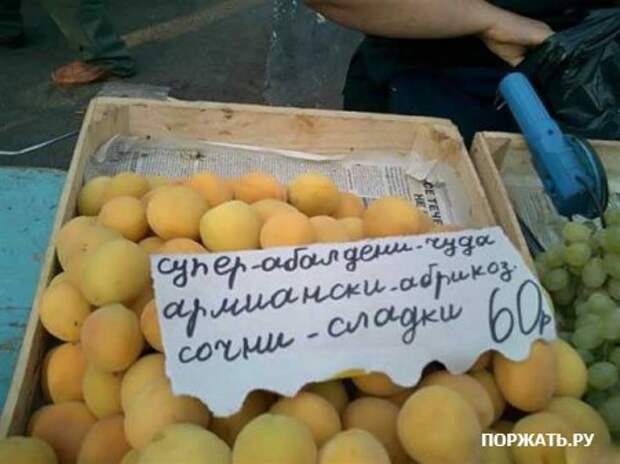 супер-абалдени-чуда
армиански-абрикоз
сочни-сладки 60р
ПОРЖАТЬ.РУ